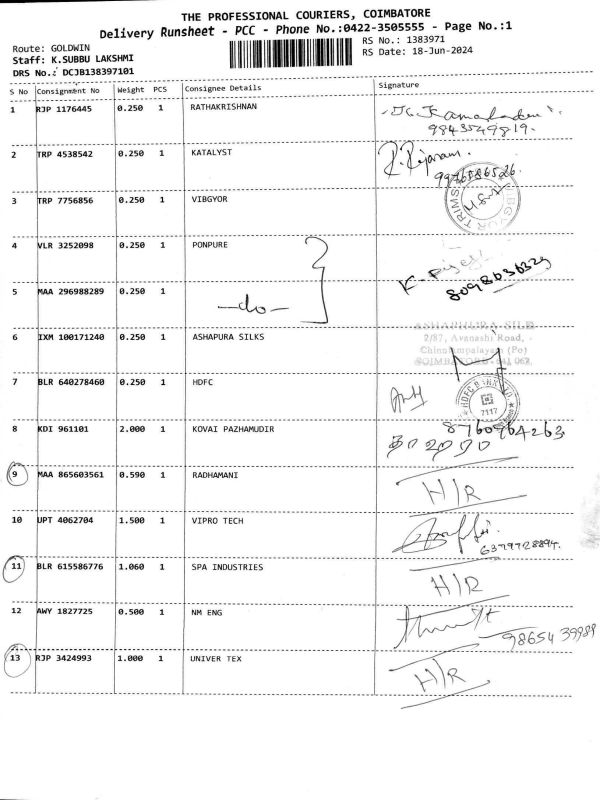 THE PROFESSIONAL COURIERS, COIMBATORE
Delivery Runsheet - PCC - Phone No.:0422-3505555 - Page No.:1
Route: GOLDWIN
RS No.: 1383971
Staff: K.SUBBU LAKSHMI
RS Date: 18-Jun-2024
DRS No.: DCJB138397101
S No Consignment No Weight PCS Consignee Details Signature
1 RJP 1176445 0.250 1 RATHAKRISHNAN
9843549819.
2 TRP 4538542 0.250 1 KATALYST R. Rajaram.
9976586526.
3 TRP 7756856 0.250 1 VIBGYOR
4 VLR 3252098 0.250 1 PONPURE
8098636329
5 MAA 296988289 0.250 1 —do—
6 IXM 100171240 0.250 1 ASHAPURA SILKS
ASHAPHURA SILK
2/87, Avanashi Road,
Chinniampalayam (Po)
COIMBATORE - 641 062.
7 BLR 640278460 0.250 1 HDFC
HDFC BANK LTD
7117
8 KDI 961101 2.000 1 KOVAI PAZHAMUDIR 8760964263
9 MAA 865603561 0.590 1 RADHAMANI H/R
10 UPT 4062704 1.500 1 VIPRO TECH
6379728894.
11 BLR 615586776 1.060 1 SPA INDUSTRIES H/R
12 AWY 1827725 0.500 1 NM ENG
98654 39989
13 RJP 3424993 1.000 1 UNIVER TEX H/R